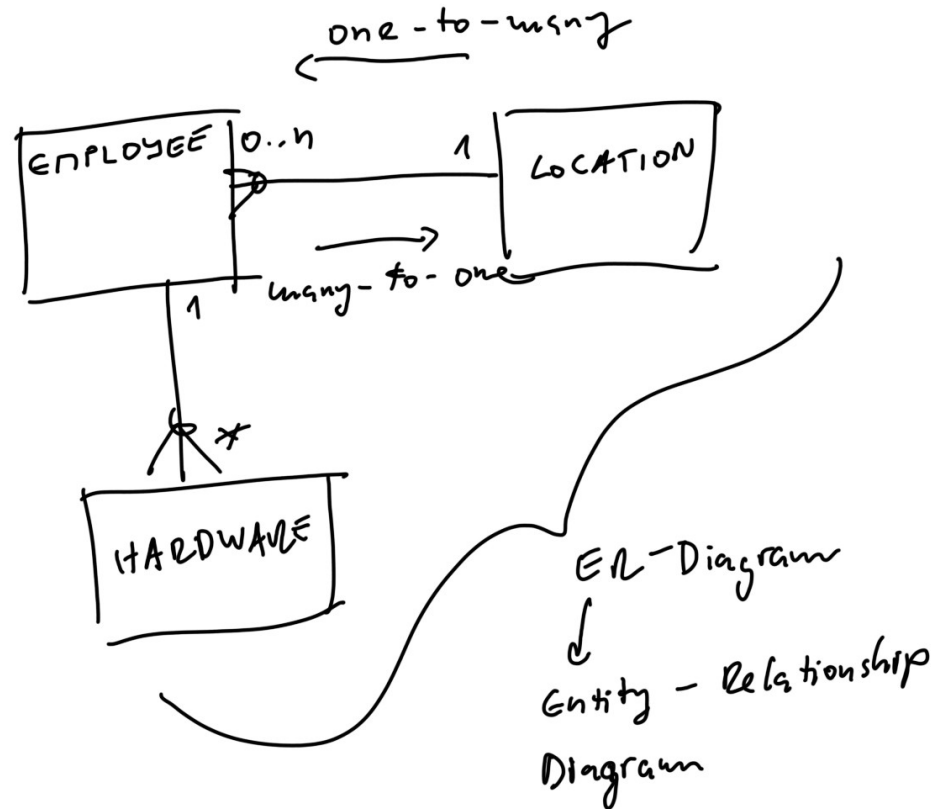 one-to-many
EMPLOYEE
0..n
1
LOCATION
many-to-one
1
*
HARDWARE
ER-Diagram
Entity - Relationship
Diagram